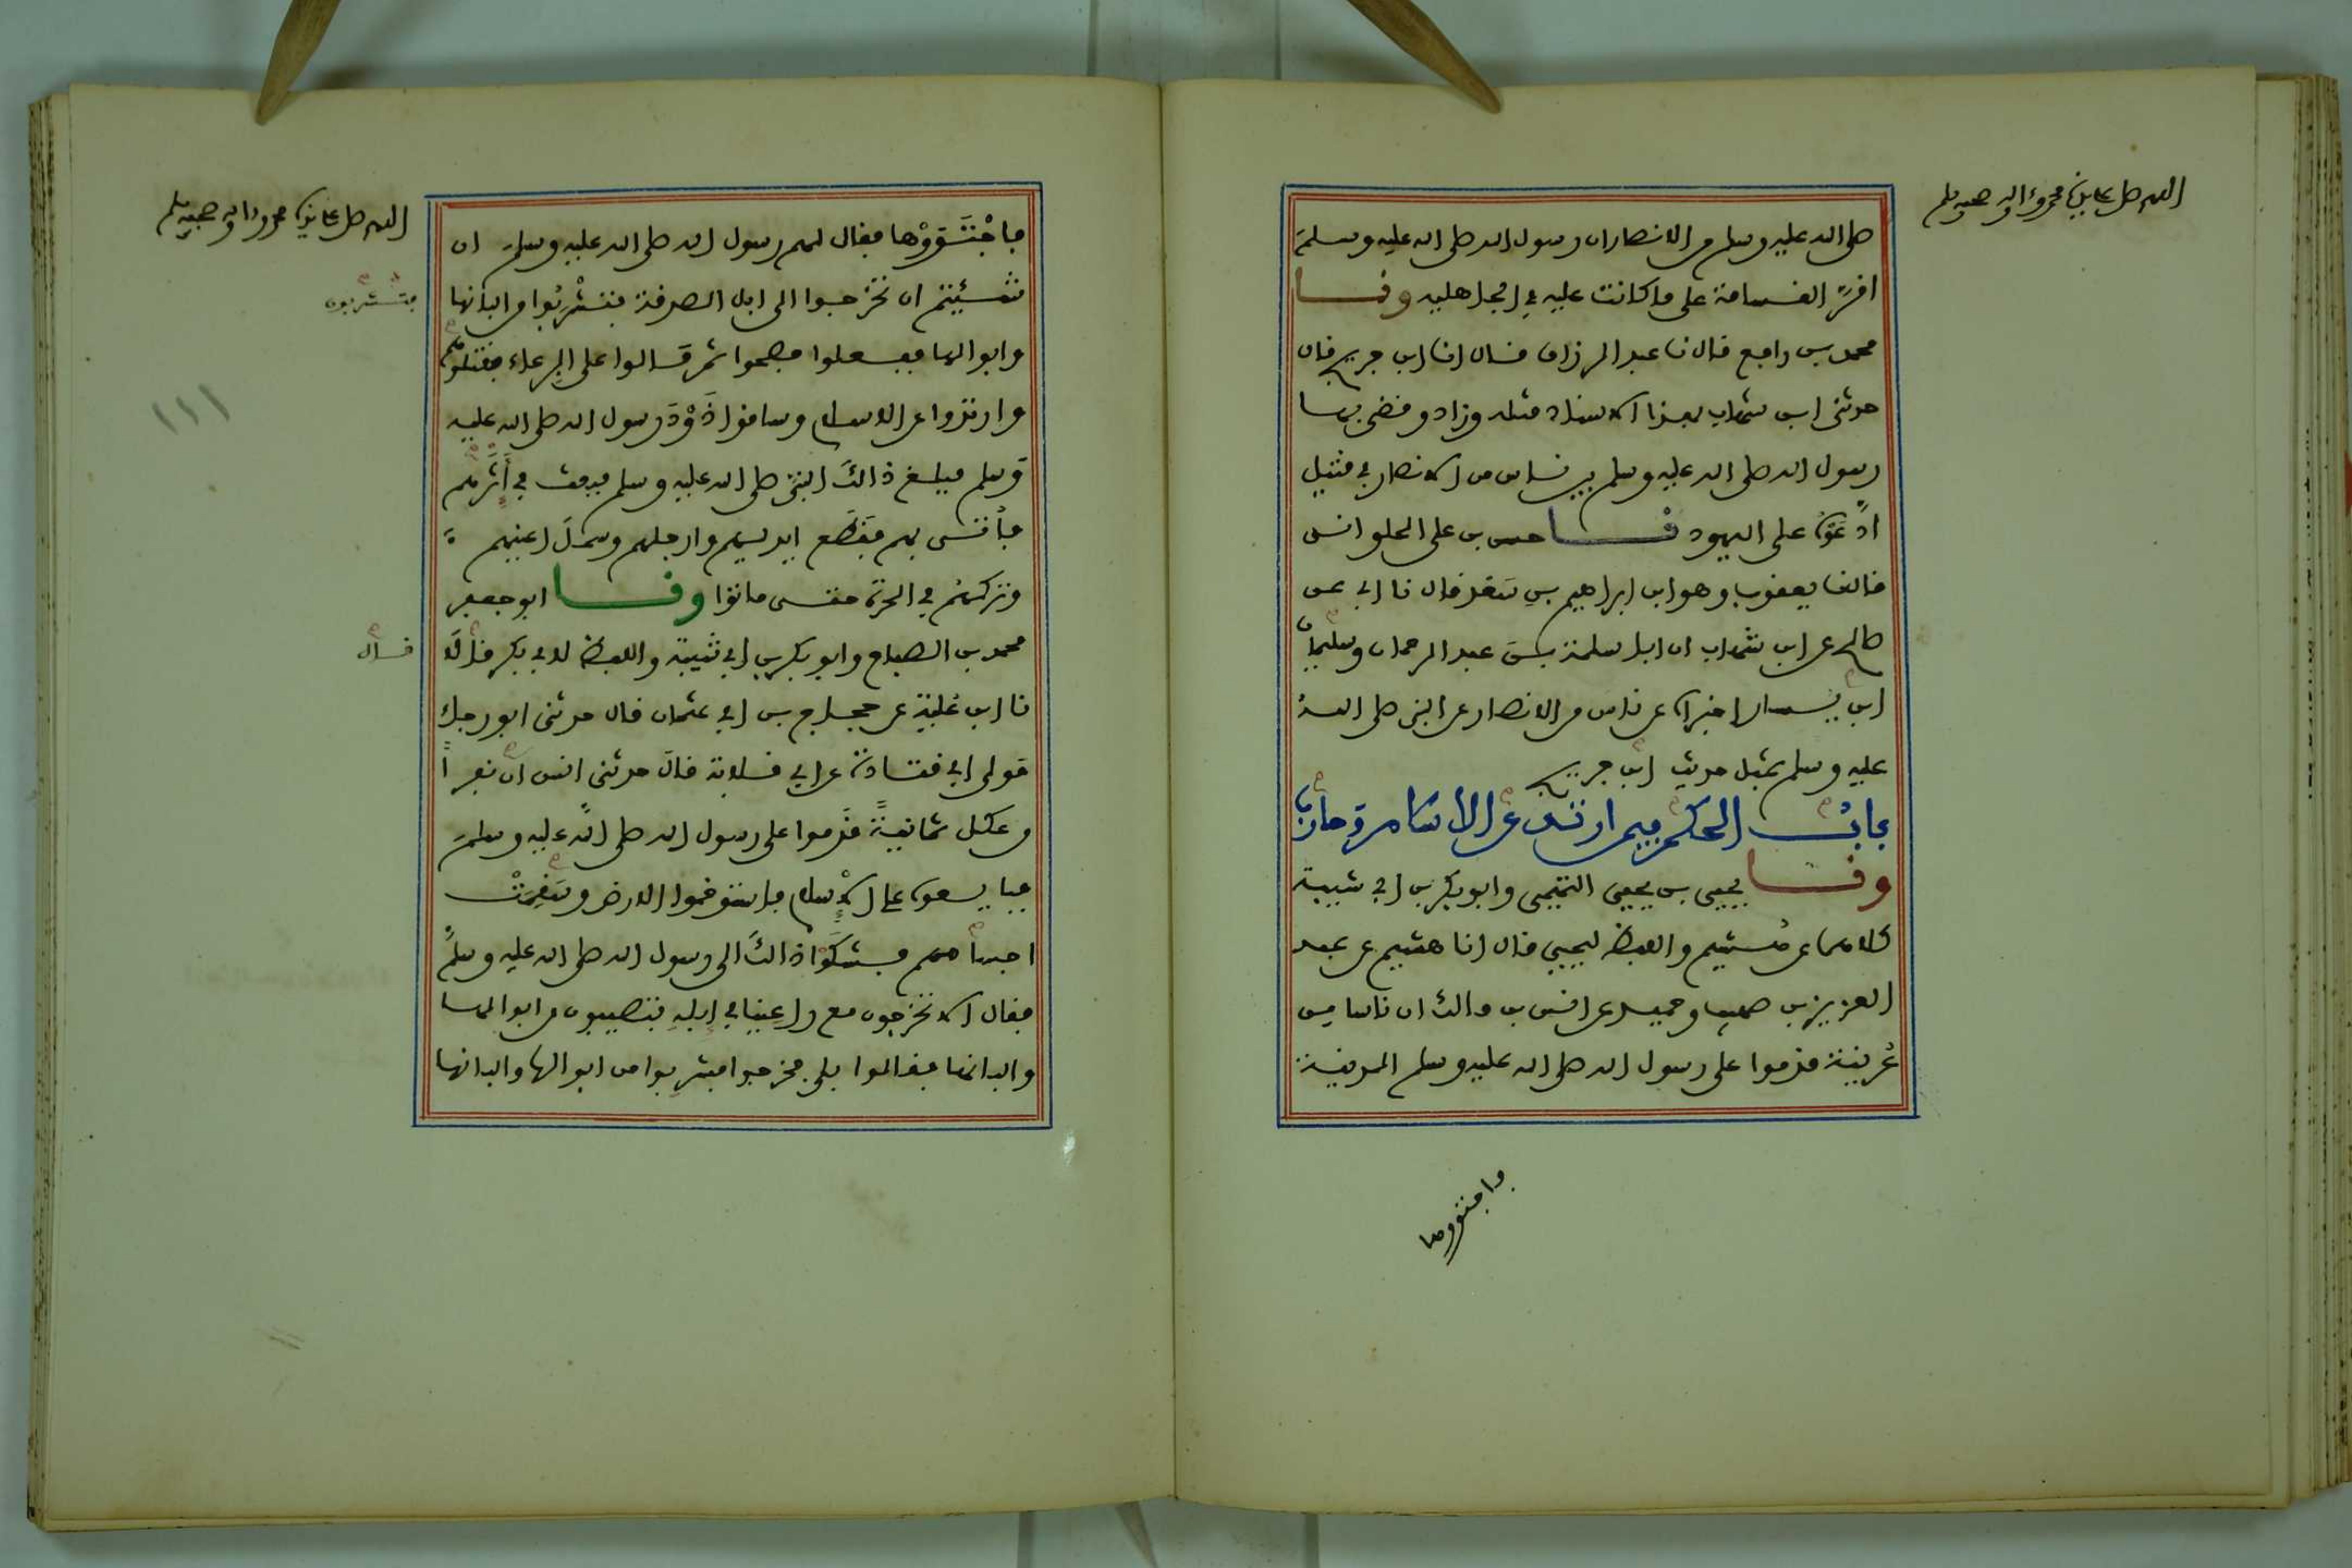 اللهم صل على سيدنا محمد وءاله وصحبه وسلم
صلى الله عليه وسلم من الانصار ان رسول الله صلى الله عليه وسلم
اقر القسامة على ما كانت عليه في الجاهلية ونا
محمد بن رافع قال نا عبد الرزاق قال انا ابن جريج قال
حدثنى ابن شهاب بهذا الاسناد مثله وزاد وقضى بها
رسول الله صلى الله عليه وسلم بين ناس من الانصار في قتيل
ادعوه على اليهود نا حسن بن على الحلوانى
قال نا يعقوب وهو ابن ابراهيم بن سعد قال نا ابي عن
صالح عن ابن شهاب ان ابا سلمة بن عبد الرحمان وسليمان
ابن يسار اخبراه عن ناس من الانصار عن النبي صلى الله
عليه وسلم بمثل حديث ابن جريج
باب الحكم فيمن ارتد عن الاسلام وحارب
ونا يحيى بن يحيى التميمى وابو بكر بن ابي شيبة
كلاهما عن هشيم واللفظ ليحيى قال انا هشيم عن عبد
العزيز بن صهيب وحميد عن انس بن مالك ان ناسا من
عرينة قدموا على رسول الله صلى الله عليه وسلم المدينة
فاجتووها
اللهم صل على سيدنا محمد وءاله وصحبه وسلم
فاجتووها فقال لهم رسول الله صلى الله عليه وسلم ان
شئيتم ان تخرجوا الى ابل الصدقة فتشربوا من البانها
فتشربون
وابوالها ففعلوا فصحوا ثم مالوا على الرعاء فقتلوهم
وارتدوا عن الاسلام وساقوا ذود رسول الله صلى الله عليه
وسلم فبلغ ذالك النبي صلى الله عليه وسلم فبعث في أثرهم
فأتى بهم فقطع ايديهم وارجلهم وسمل اعينهم
وتركهم في الحرة حتى ماتوا ونا ابو جعفر
محمد بن الصباح وابو بكر بن ابي شيبة واللفظ لابي بكر قالا
قال
نا ابن علية عن حجاج بن ابي عثمان قال حدثنى ابو رجاء
مولى ابي قلابة عن ابي قلابة قال حدثنى انس ان نفرا
من عكل ثمانية قدموا على رسول الله صلى الله عليه وسلم
فبايعوه على الإسلام فاستوخموا الارض وسقمت
اجسامهم فشكوا ذالك الى رسول الله صلى الله عليه وسلم
فقال الا تخرجون مع راعينا في إبله فتصيبون من ابوالها
والبانها فقالوا بلى فخرجوا فشربوا من ابوالها والبانها
١١١